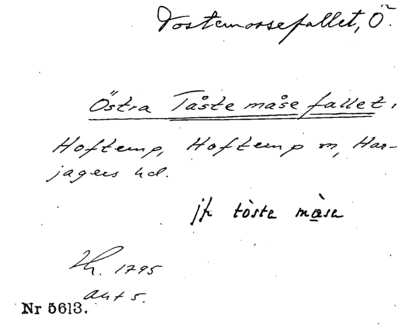 Tostemossefallet, Ö.
Östra Tåste måse fallet,
Hoftemp, Hoftemp sn, Har-
jagers hd.
jfr tòste mɑ̀se
Lh. 1795
akt 5.
Nr 5613.